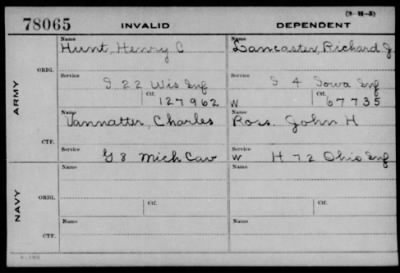 (3-14-3)
78065 INVALID DEPENDENT
Name Name
Hunt, Henry C Lancaster, Richard J.
ORIG.
Service Service
I 22 Wis Inf I 4 Iowa Inf
Ctf. Ctf.
127962 W 67735
ARMY
Name Name
Vannatter, Charles Ross. John H
CTF.
Service Service
G 8 Mich Cav W H 72 Ohio Inf
Name Name
ORIG.
Service Service
Ctf. Ctf.
NAVY
Name Name
CTF.
Service Service